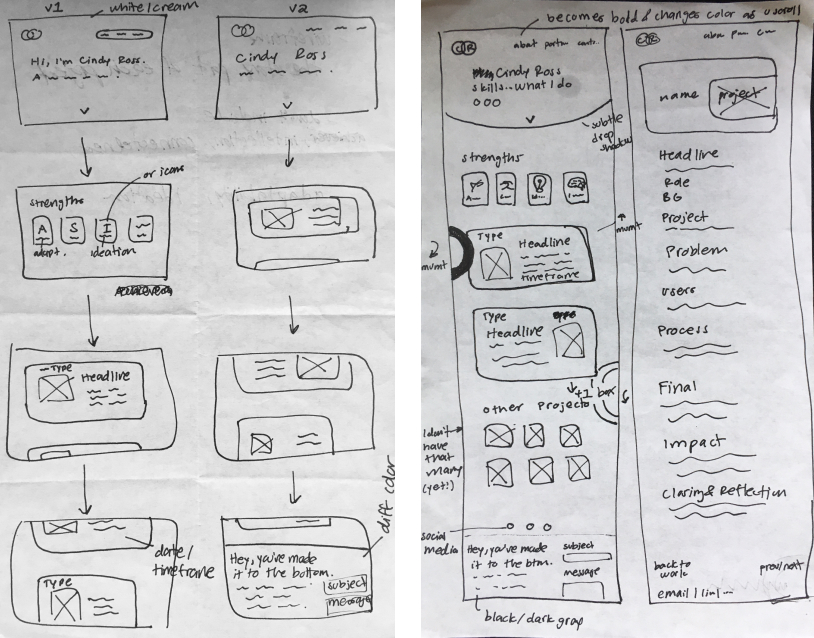 v1
white/cream
Hi, I'm Cindy Ross.
v2
Cindy Ross
or icons
strengths
A
S
I
adapt.
ideation
Type
Headline
date/
timeframe
Type
Hey, you've made
it to the bottom.
subject
message
diff color
becomes bold & changes color as u scroll
CR
Cindy Ross
skills... what I do
subtle
drop
shadow
strengths
mvmt
Type
Headline
timeframe
mvmt
Type
Headline
+1 box
other Projects
I don't
have
that
many
(yet!)
social
media
Hey, you've made
it to the btm.
subject
message
black/dark gray
CR
name
project
Headline
Role
BG
Project
Problem
users
Process
Final
Impact
back to
work
prev/next
email | lin | ...